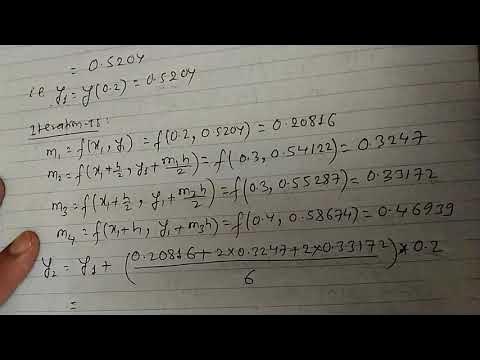 = 0.5204
i.e y₁ = y(0.2) = 0.5204
Iteration-II:
m₁ = f(x₁, y₁) = f(0.2, 0.5204) = 0.20816
m₂ = f(x₁+h/2, y₁+m₁h/2) = f(0.3, 0.54122) = 0.3247
m₃ = f(x₁+h/2, y₁+m₂h/2) = f(0.3, 0.55287) = 0.33172
m₄ = f(x₁+h, y₁+m₃h) = f(0.4, 0.58674) = 0.46939
y₂ = y₁ + (0.20816+2×0.3247+2×0.33172/6)*0.2
=